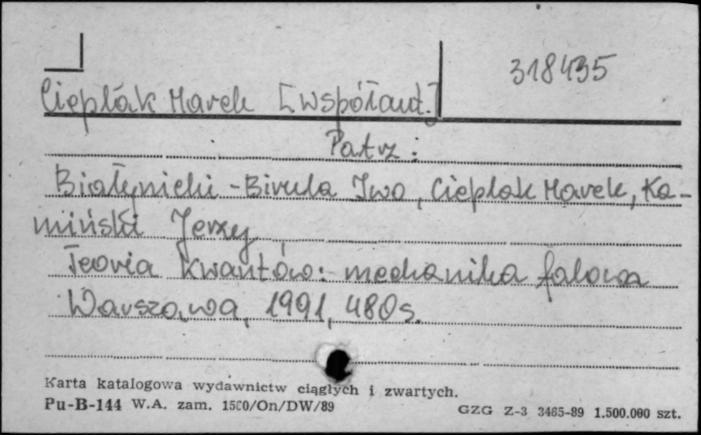 318435
Cieplak Marek [współaut.]
Patrz:
Białynicki-Birula Iwo, Cieplak Marek, Ka-
miński Jerzy
Teoria kwantów: mechanika falowa
Warszawa, 1991, 480s.
Karta katalogowa wydawnictw ciągłych i zwartych.
Pu-B-144 W.A. zam. 1500/On/DW/89
GZG Z-3 3465-89 1.500.000 szt.